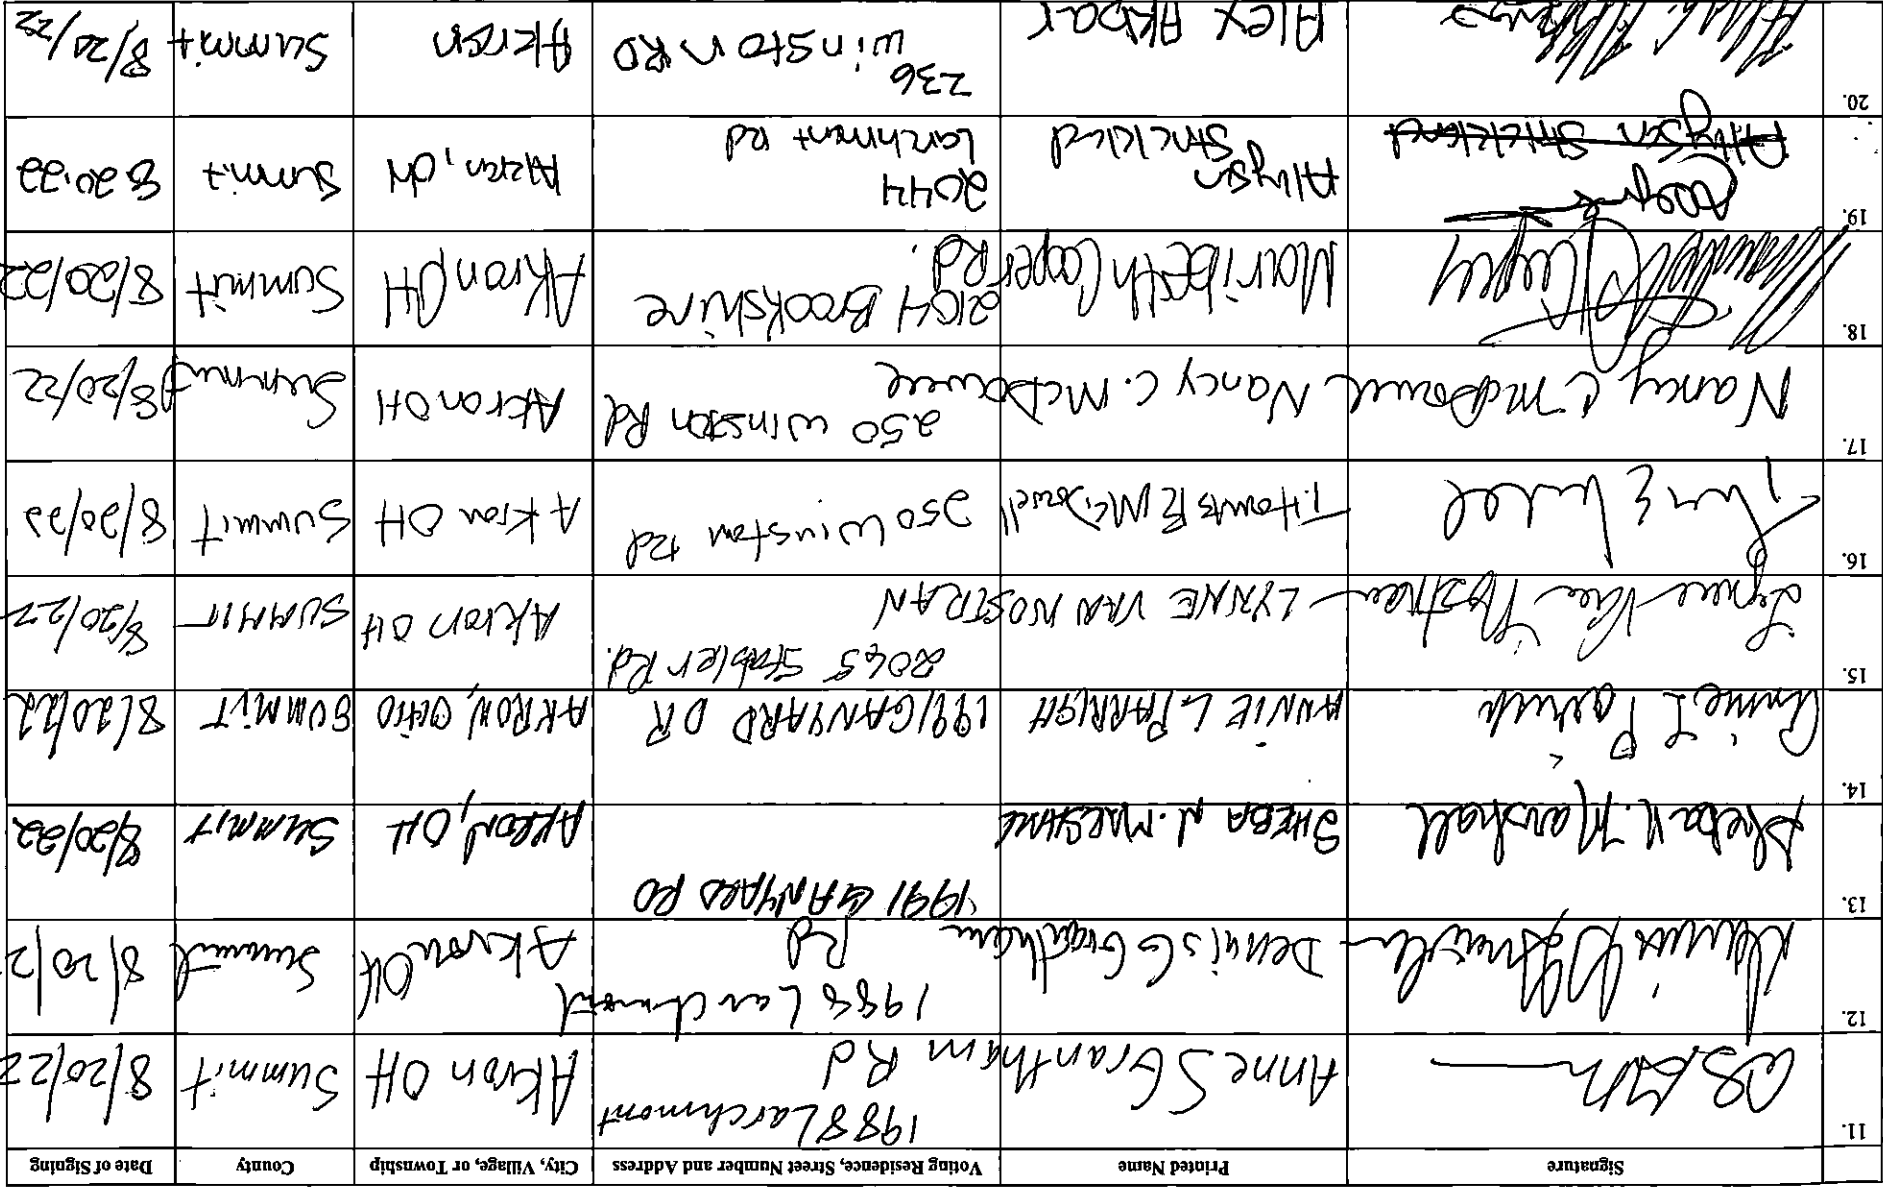 Signature Printed Name Voting Residence, Street Number and Address City, Village, or Township County Date of Signing
11. Anne S Grantham 1988 Larchmont Rd Akron OH Summit 8/20/22
12. Dennis G Grantham 1988 Larchmont Rd Akron OH Summit 8/20/2
13. Sheba N. Marshall SHEBA N. MARSHALL 1991 GANYARD RD AKRON, OH SUMMIT 8/20/22
14. Annie L Parrish ANNIE L PARRISH 1991 GANYARD DR AKRON, OHIO SUMMIT 8/20/22
15. Lynne Van Nostran LYNNE VAN NOSTRAN 2065 Stabler Rd. Akron OH SUMMIT 8/20/22
16. Thomas E McDowell 250 Winston Rd Akron OH Summit 8/20/22
17. Nancy C. McDowell Nancy C. McDowell 250 Winston Rd Akron OH Summit 8/20/22
18. Maribeth Cooper 2164 Brookshire Rd. Akron OH Summit 8/20/22
19. Allyson Strickland Allyson Strickland 2044 Larchmont Rd Akron, OH Summit 8.20.22
20. Alex Akbar 236 Winston RD Akron Summit 8/20/22